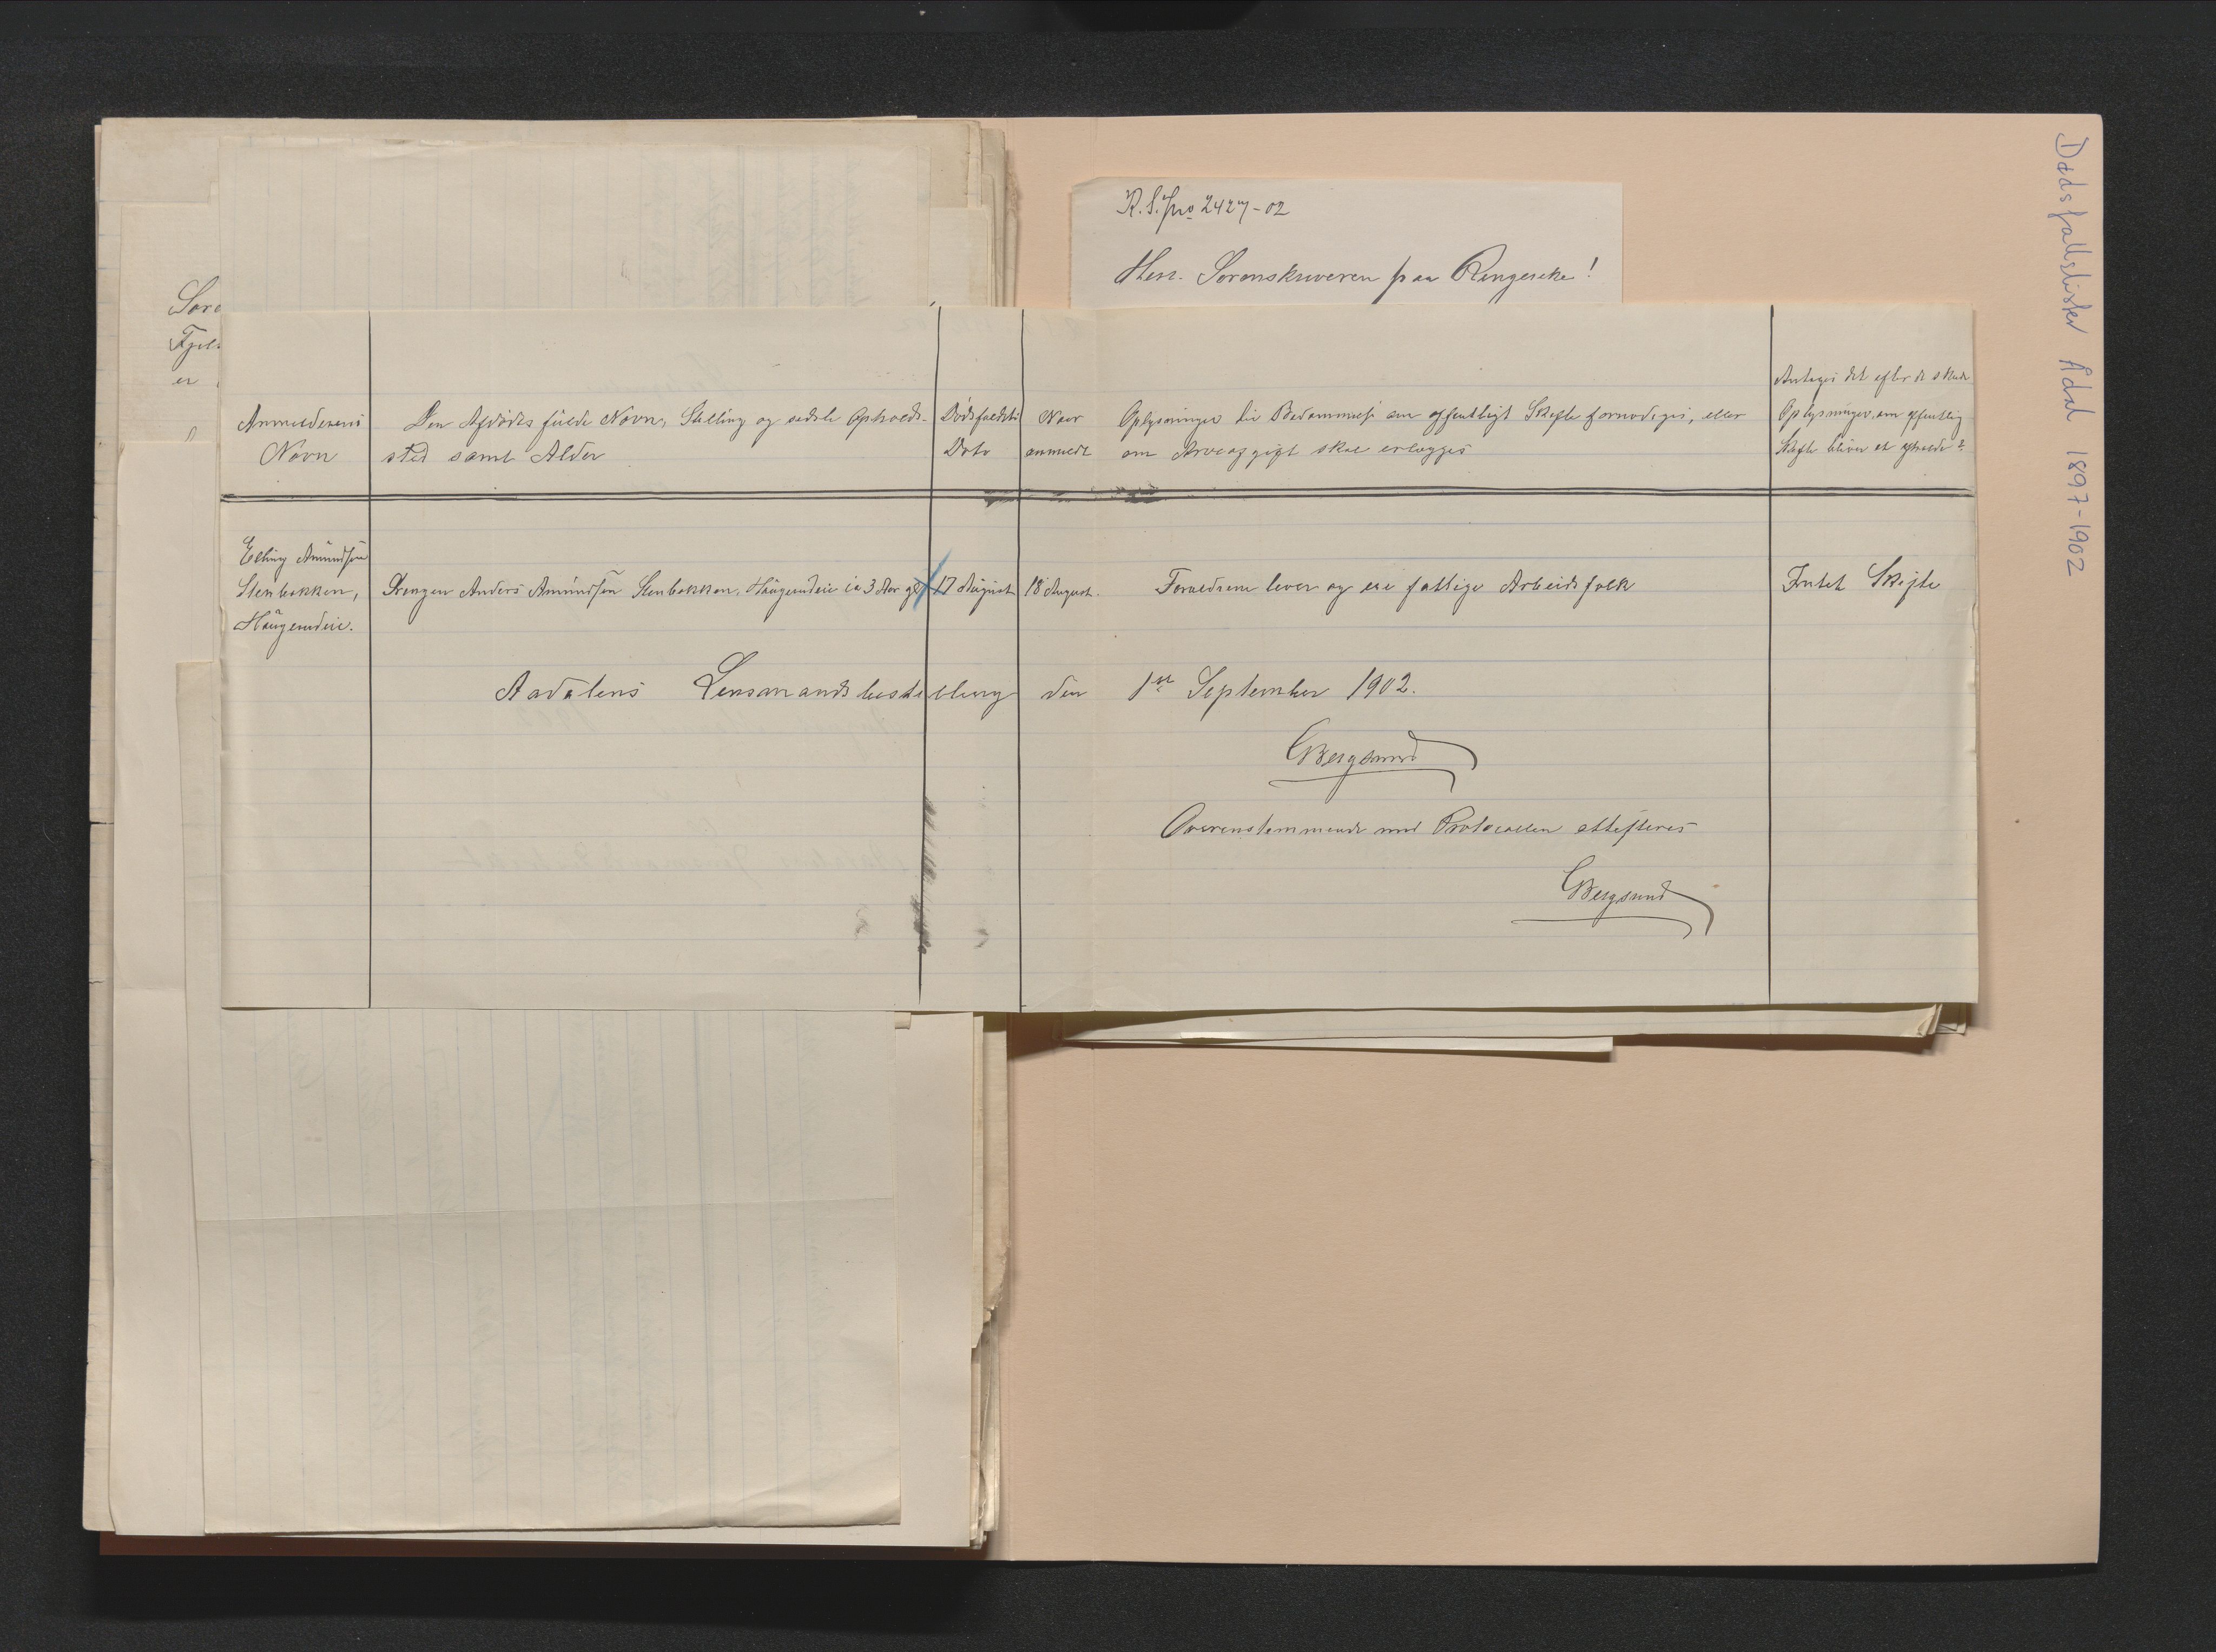 Dødsfallslister Ådal 1897-1902
R. S. jno 2427-02
Herr. Sorenskriveren paa Ringerike!
Sore
Fjel
er
Anmelderens
Navn
Den Afdødes fulde Navn, Stilling og sidste Opholds-
sted samt Alder
Dødsfaldets
Dato
Naar
anmeldt
Oplysninger til Bedømmelse om offentligt Skifte fornødiges, eller
om Arveafgift skal erlægges
Antages det efter de skede
Oplysninger, om offentlig
Skifte bliver at afholde?
Elling Amundsen
Stenbakken,
Haugerudeie.
Drengen Anders Amundsen Stenbakken, Haugerudeie ca 3 Aar gl
17 August
18 August.
Forældrene lever og ere fattige Arbeidsfolk
Intet Skifte
Aadalens Lensmandsbestilling den 1ste September 1902.
Bergsund
Overensstemmende med Protocollen attesteres
Bergsund